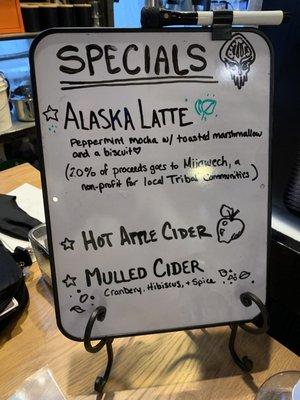 SPECIALS
ALASKA LATTE
Peppermint mocha w/ toasted marshmallow
and a biscuit♡
(20% of proceeds goes to Miigwech, a
non-profit for local Tribal Communities)
HOT APPLE CIDER
MULLED CIDER
Cranberry, Hibiscus, + Spice